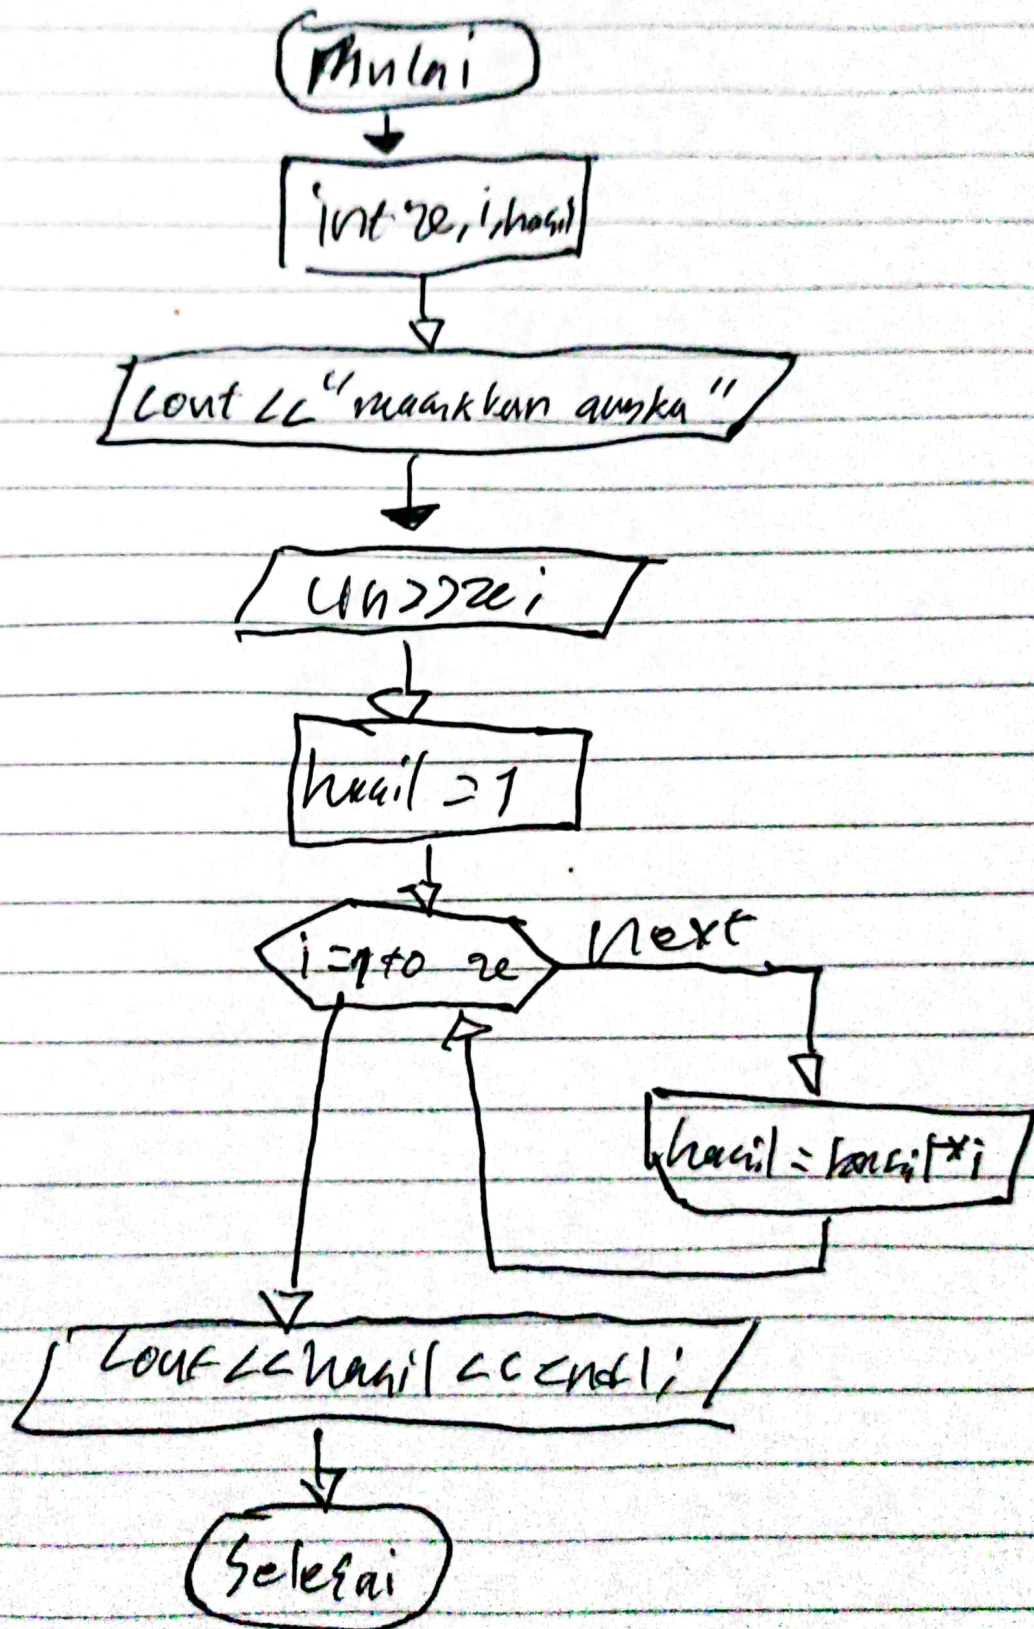 Mulai
int x, i, hasil
cout << "masukkan angka"
cin>>x;
hasil = 1
i = 1 to x
Next
hasil = hasil * i
cout << hasil << endl;
Selesai